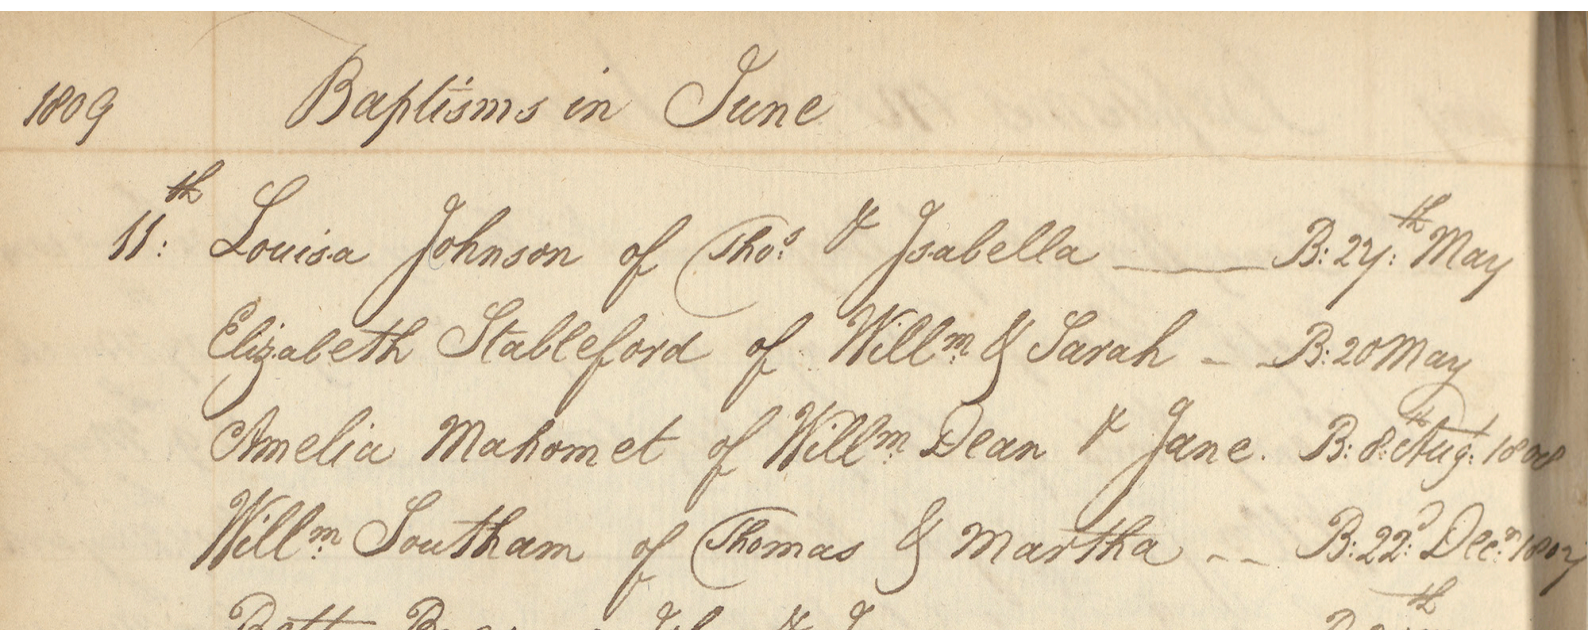 1809 Baptisms in June
11:th Louisa Johnson of Thos: & Isabella — B: 27:th May
Elizabeth Stableford of Willm: & Sarah - - B: 20 May
Amelia Mahomet of Willm: Dean & Jane. B: 8:th Aug: 1808
Willm: Southam of Thomas & Martha - - B: 22:d Decr: 1807